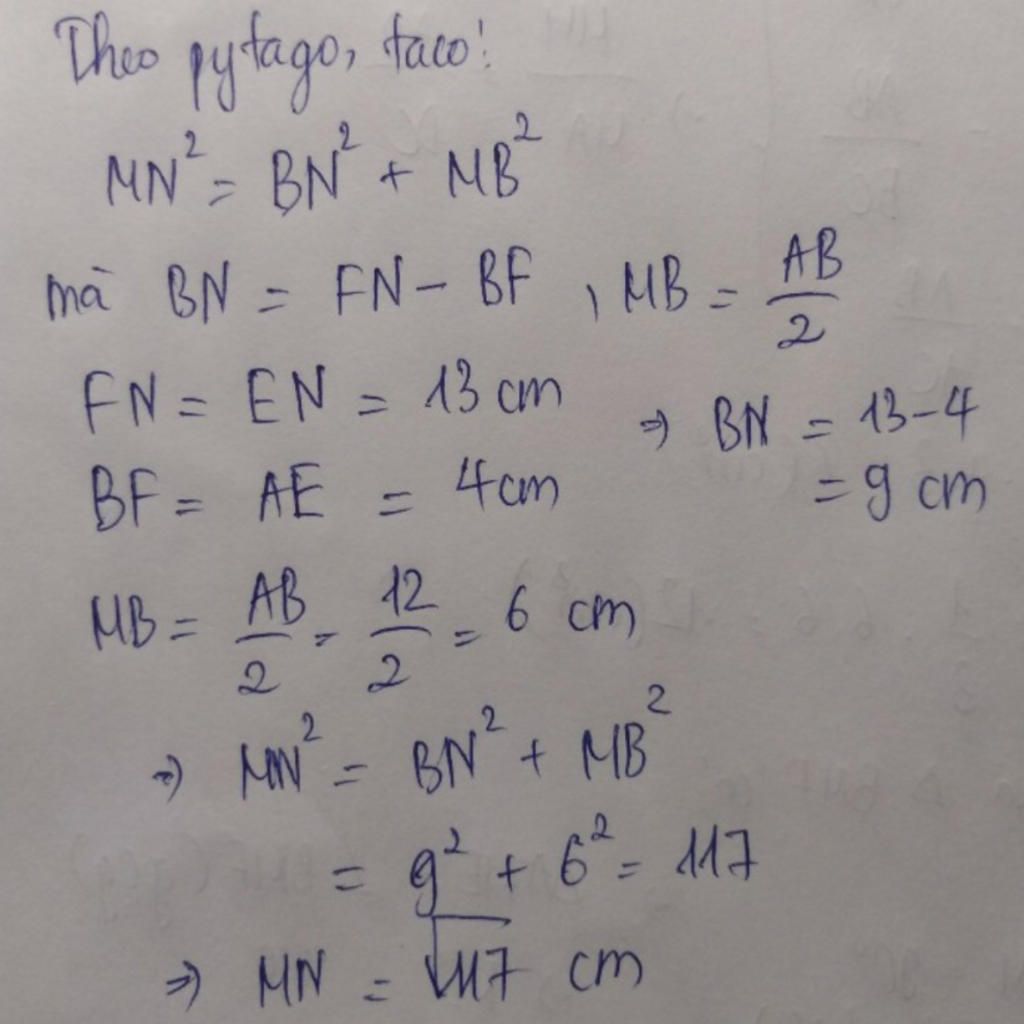 Theo pytago, taco:
MN² = BN² + MB²
mà BN = FN - BF , MB = AB/2
FN = EN = 13 cm
BF = AE = 4cm
=> BN = 13-4
= 9 cm
MB = AB/2 = 12/2 = 6 cm
=> MN² = BN² + MB²
= 9² + 6² = 117
=> MN = √117 cm